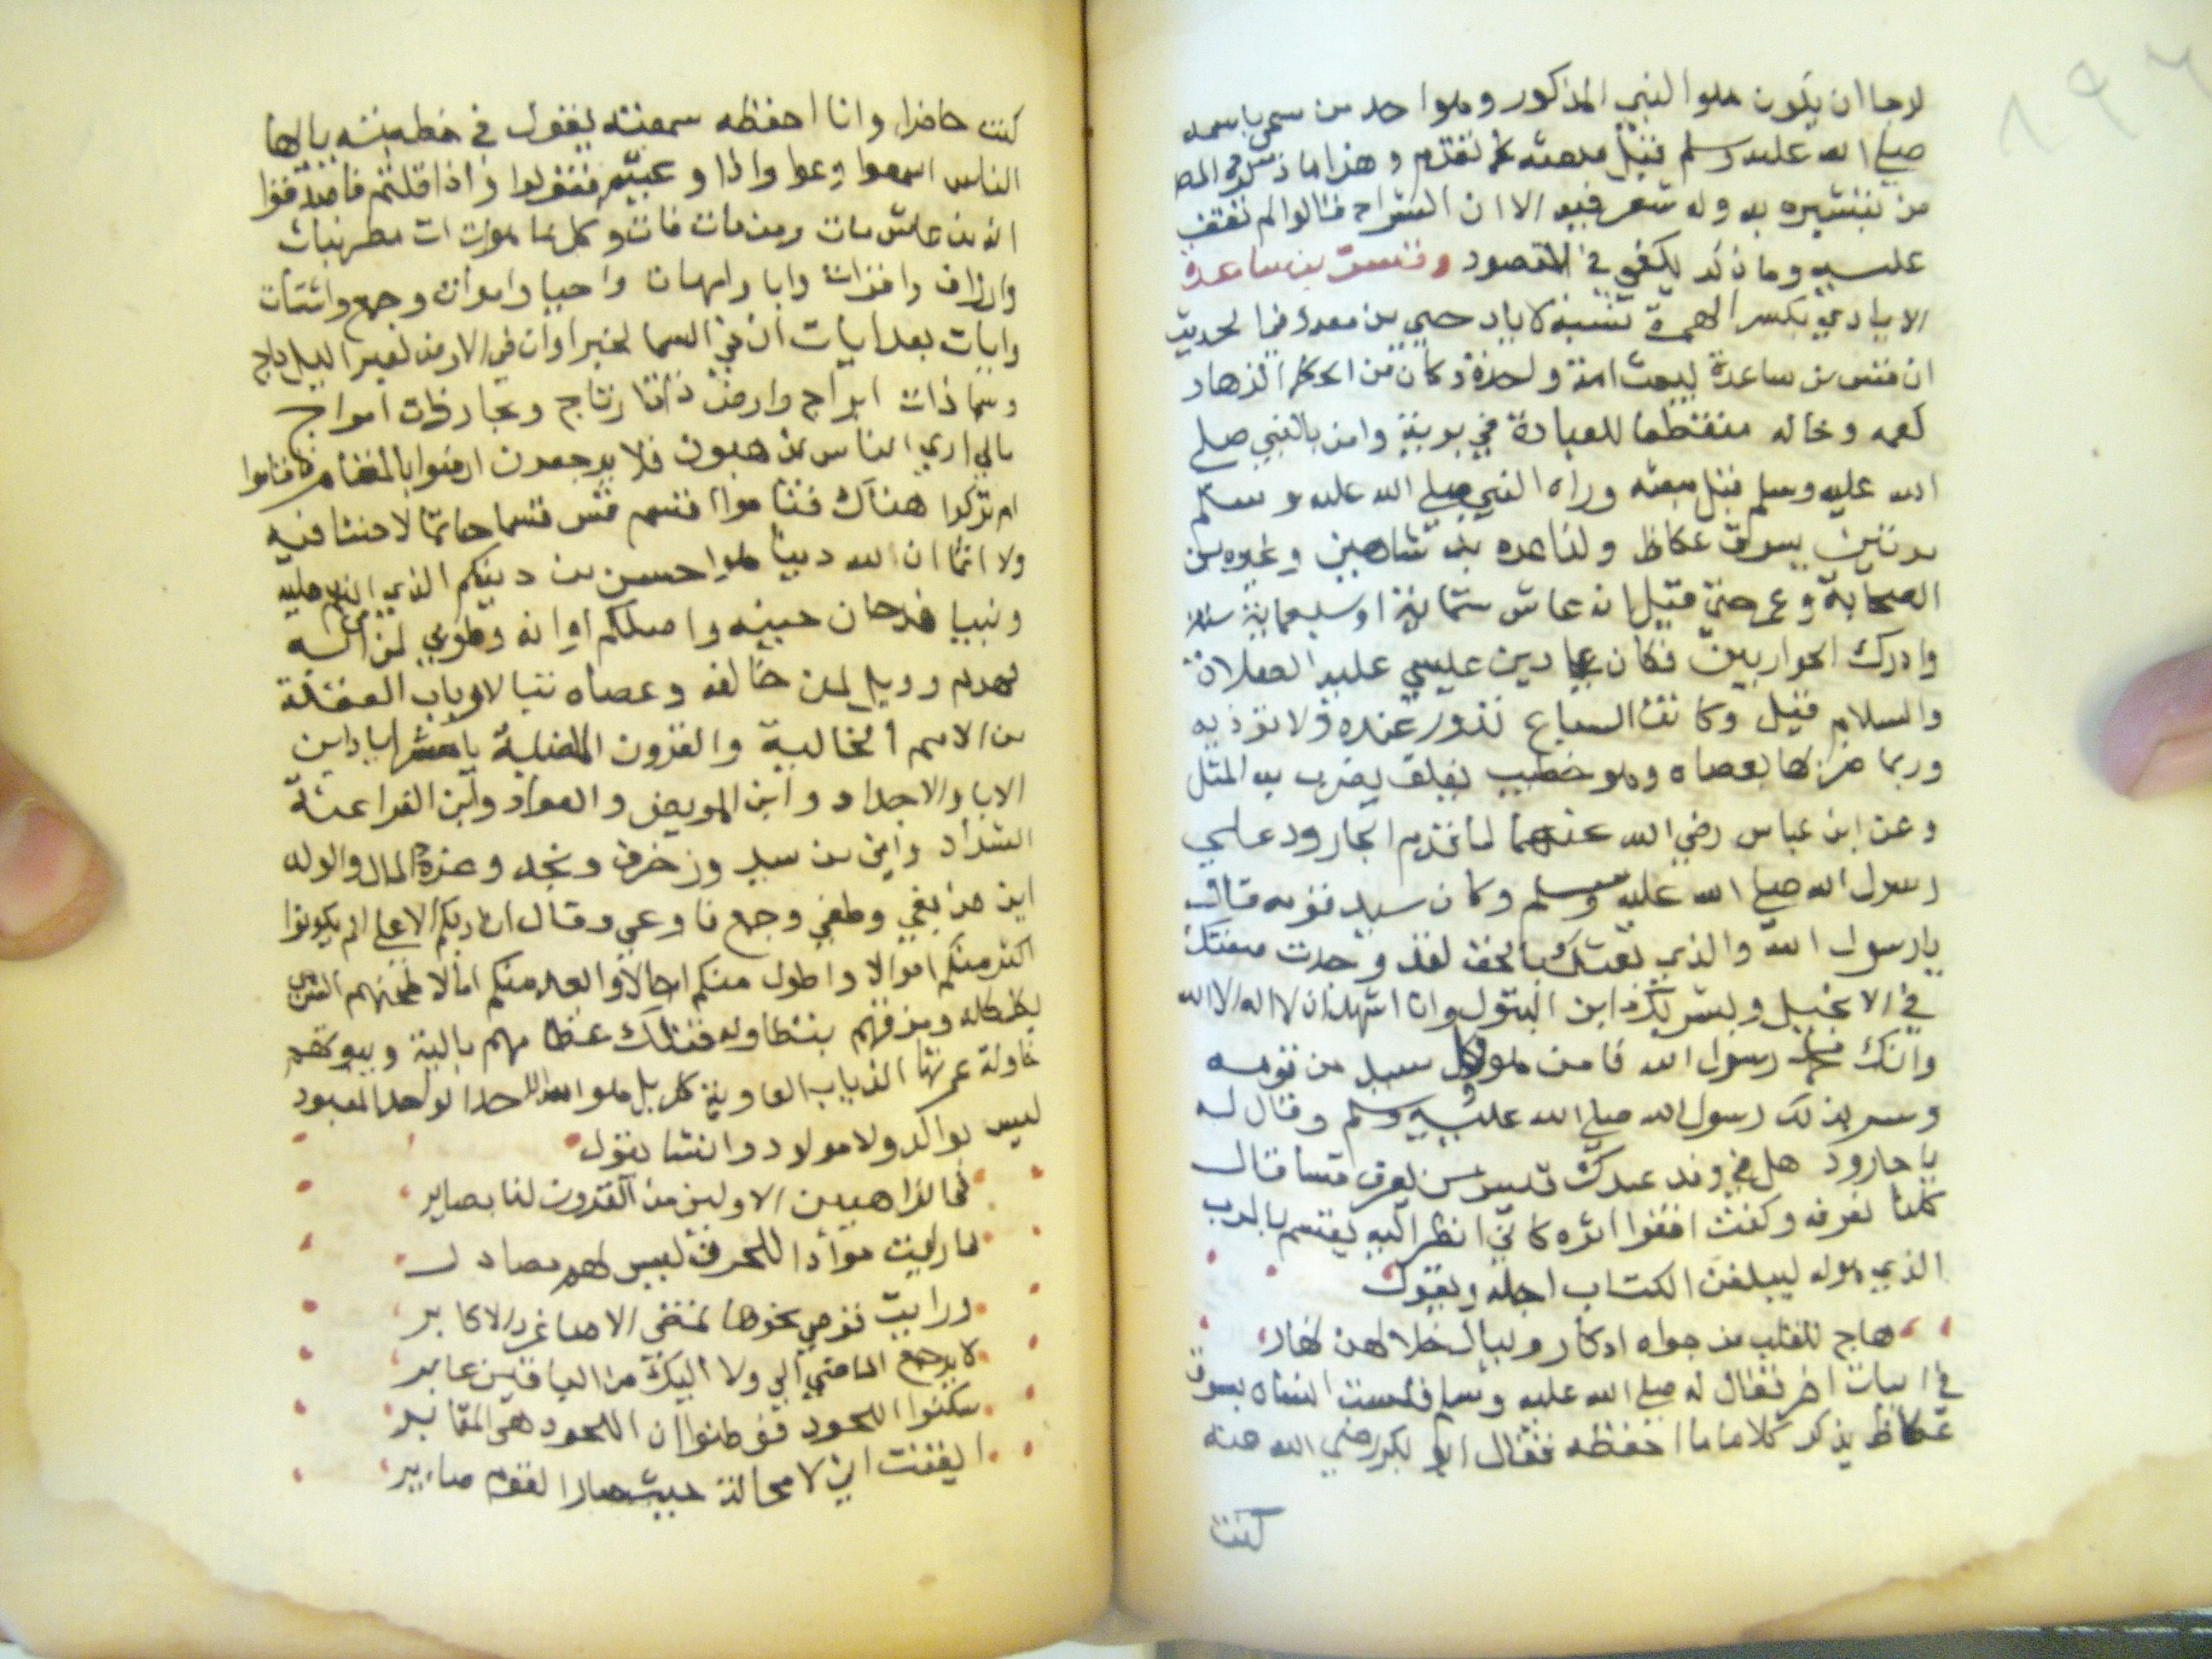 ١٩٢
لرجا ان يكون هو النبي المذكور وهو احد من سمي باسمه
صلى الله عليه وسلم قبل مبعثه كما تقدم وهذا ما ذكره المص
من تبشيره به وله شعر فيه الا ان الشراح قالوا لم نقف
عليه وما ذكر يكفي في المقصود وقس بن ساعدة
الايادي بكسر الهمزة نسبة لاياد حي من معد وفي الحديث
ان قس بن ساعدة يبعث امة وحده وكان من الحكماء الزهاد
كعمه وخاله منقطعا للعبادة في برية وامن بالنبي صلى
الله عليه وسلم قبل مبعثه وراه النبي صلى الله عليه وسلم
مرتين بسوق عكاظ ولذا عده بن شاهين وغيره من
الصحابة وعمر حتى قيل انه عاش ستمائة او سبعماية سنة
وادرك الحواريين فكان على دين عيسي عليه الصلاة
والسلام قيل وكانت السباع تزور عنده ولا توذيه
وربما ضربها بعصاه وهو خطيب يضرب به المثل
وعن ابن عباس رضي الله عنهما لما قدم الجارود على
رسول الله صلى الله عليه وسلم وكان سيد قومه قال
يا رسول الله والذي بعثك بالحق لقد وجدت صفتك
في الانجيل وبشر بك ابن البتول وانا اشهد ان لا اله الا الله
وانك محمد رسول الله فامن هو وكل سيد من قومه
وسر بذلك رسول الله صلى الله عليه وسلم وقال له
يا جارود هل في وفد عبد القيس من يعرف قسا قال
كلنا نعرفه وكنت اقفوا اثره كاني انظر اليه يقسم بالرب
الذي هو له ليبلغن الكتاب اجله ويقول
هاج للقلب من جواه ادكار وليال خلالهن نهار
في ابيات اخر فقال له صلى الله عليه وسلم فلست انساه بسوق
عكاظ يذكر كلاما ما احفظه فقال ابو بكر رضي الله عنه
كنت
كنت حاضرا وانا احفظه سمعته يقول في خطبته يا ايها
الناس اسمعوا وعوا واذا وعيتم فقولوا واذا قلتم فاصدقوا
انه من عاش مات ومن مات فات وكل ما هو ات ات مطر ونبات
وارزاق واقوات وابا وامهات واحيا واموات وجمع واشتات
وايات بعد ايات ان في السما لخبرا وان في الارض لعبرا ليل داج
وسما ذات ابراج وارض ذات رتاج وبحار ذات امواج
مالي اري الناس يذهبون فلا يرجعون ارضوا بالمقام فاقاموا
ام تركوا هناك فناموا اقسم قس قسما حاتما لا حنثا فيه
ولا اثما ان لله دينا هو احسن من دينكم الذي انتم عليه
ونبيا قد حان حينه واظلكم اوانه وطوبي لمن امن به
فهداه وويل لمن خالفه وعصاه تبا لارباب الغفلة
من الامم الخالية والقرون الماضية يا معشر اياد اين
الابا والاجداد واين المريض والعواد واين الفراعنة
الشداد واين من شيد وزخرف ونجد وغره المال والولد
اين من بغي وطغي وجمع فاوعي وقال انا ربكم الاعلى الم يكونوا
اكثر منكم اموالا واطول منكم اجالا وابعد منكم امالا طحنهم الثري
بكلكله ومزقهم بتطاوله فتلك عظامهم بالية وبيوتهم
خاوية عمرتها الذياب العاوية كلا بل هو الله الواحد المعبود
ليس بوالد ولا مولود وانشا يقول
في الذاهبين الاولين من القرون لنا بصاير
لما رايت مواردا للموت ليس لها مصادر
ورايت قومي نحوها تمضي الاصاغر والاكابر
لا يرجع الماضي الي ولا اليك من الباقين غابر
سكنوا اللحود فوطنوا ان اللحود هي المقابر
ايقنت اني لا محالة حيث صار القوم صاير